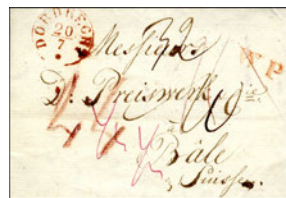 DORDRECHT
20
7
Messieurs
D. Preiswerk & Cie
à
Bâle
Suisse.